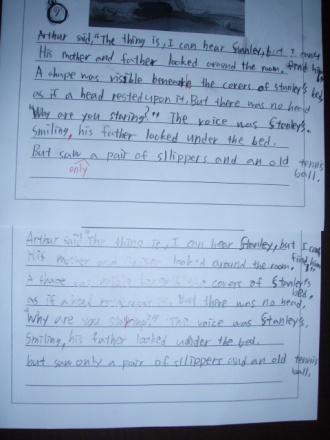 Arthur said, "The thing is, I can hear Stanley, but I can't
find him
His mother and father looked around the room.
A shape was visible beneath the covers of stanley's bed
as if a head rested upon it. But there was no head
"Why are you staring?" The voice was Stanley's.
Smiling, his father looked under the bed.
But saw a pair of sllippers and an old tennis
only
ball.
Arthur said "The thing is, I can hear Stanley, but I can't
find him
His mother and looked around the room.
A shape covers of Stanley's
bed,
as if a head But there was no head.
"Why are you The voice was Stanley's.
Smiling, his father looked under the bed.
but saw only a pair of sllippers and an old tennis
ball.